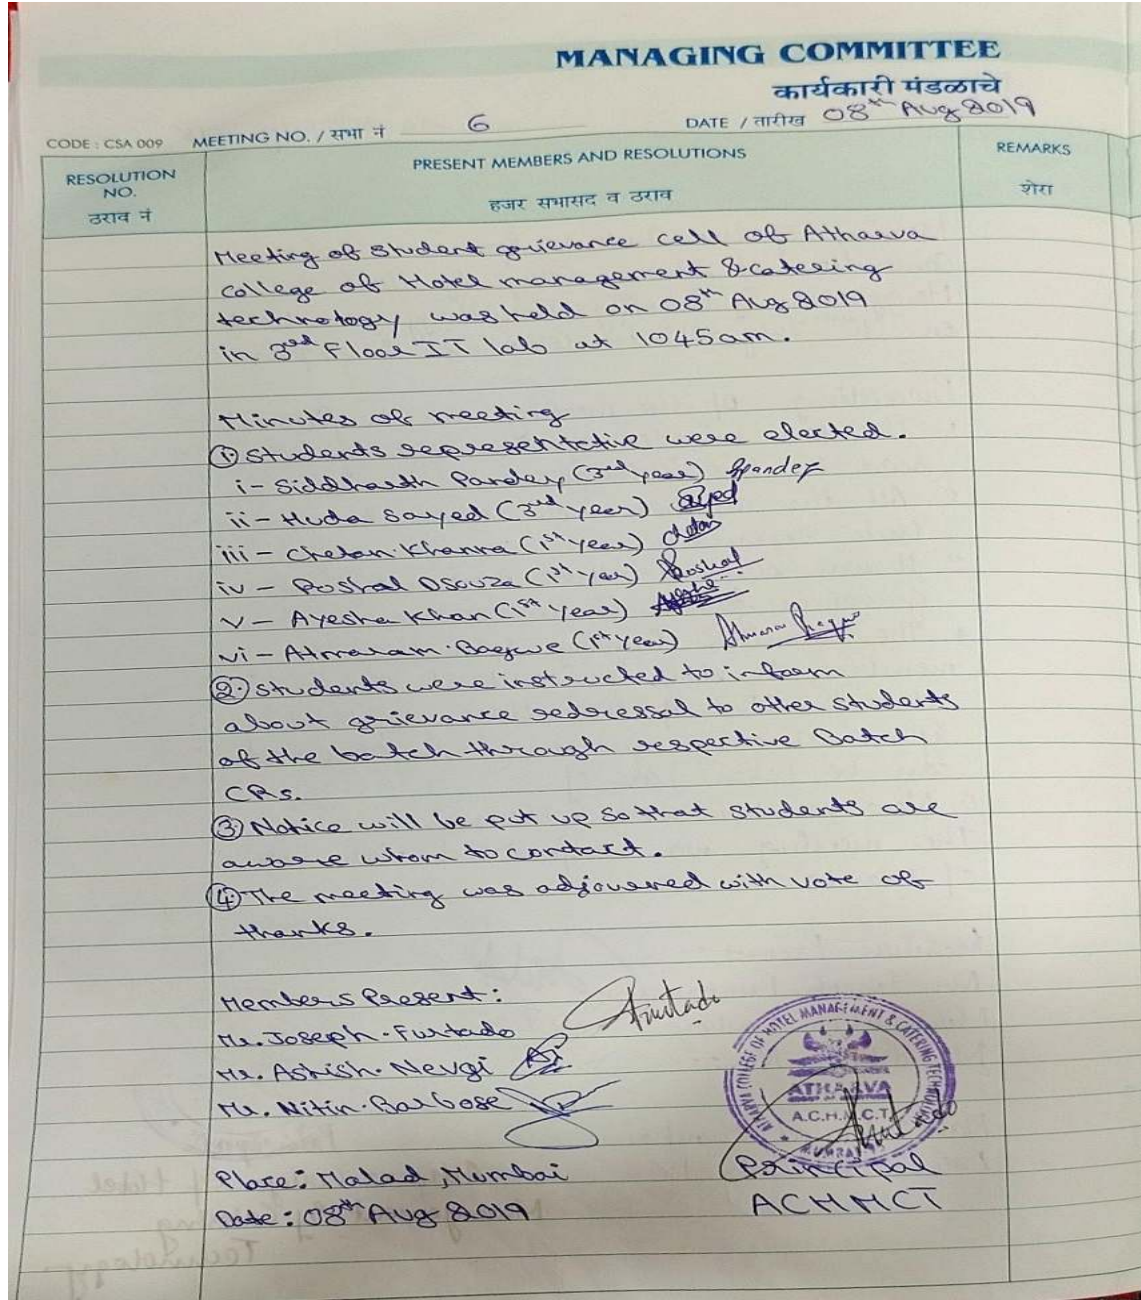 MANAGING COMMITTEE
कार्यकारी मंडळाचे
CODE : CSA 009 MEETING NO. / सभा नं 6 DATE / तारीख 08th Aug 2019
RESOLUTION NO. PRESENT MEMBERS AND RESOLUTIONS REMARKS
ठराव नं हजर सभासद व ठराव शेरा
Meeting of student grievance cell of Atharva
college of Hotel management & catering
technology was held on 08th Aug 2019
in 3rd Floor IT lab at 1045am.
Minutes of meeting
① Students representative were elected.
i- Siddharth Pandey (3rd year) SPandey
ii- Huda Sayed (3rd year) Sayed
iii- Chetan Khanra (1st year) Chetan
iv- Roshal Dsouza (1st year) Roshal
v- Ayesha Khan (1st year) Ayesha
vi- Atmaram Bagwe (1st year)
② Students were instructed to inform
about grievance redressal to other students
of the batch through respective Batch
CRs.
③ Notice will be put up so that students are
aware whom to contact.
④ The meeting was adjouered with vote of
thanks.
Members Present:
Mr. Joseph Furtado Furtado
Mr. Ashish Nevgi
Mr. Nitin Barbose
ATHARVA COLLEGE OF HOTEL MANAGEMENT & CATERING TECHNOLOGY
ATHARVA
A.C.H.M.C.T.
MUMBAI
Furtado
Place: Malad, Mumbai Principal
Date: 08th Aug 2019 ACHMCT